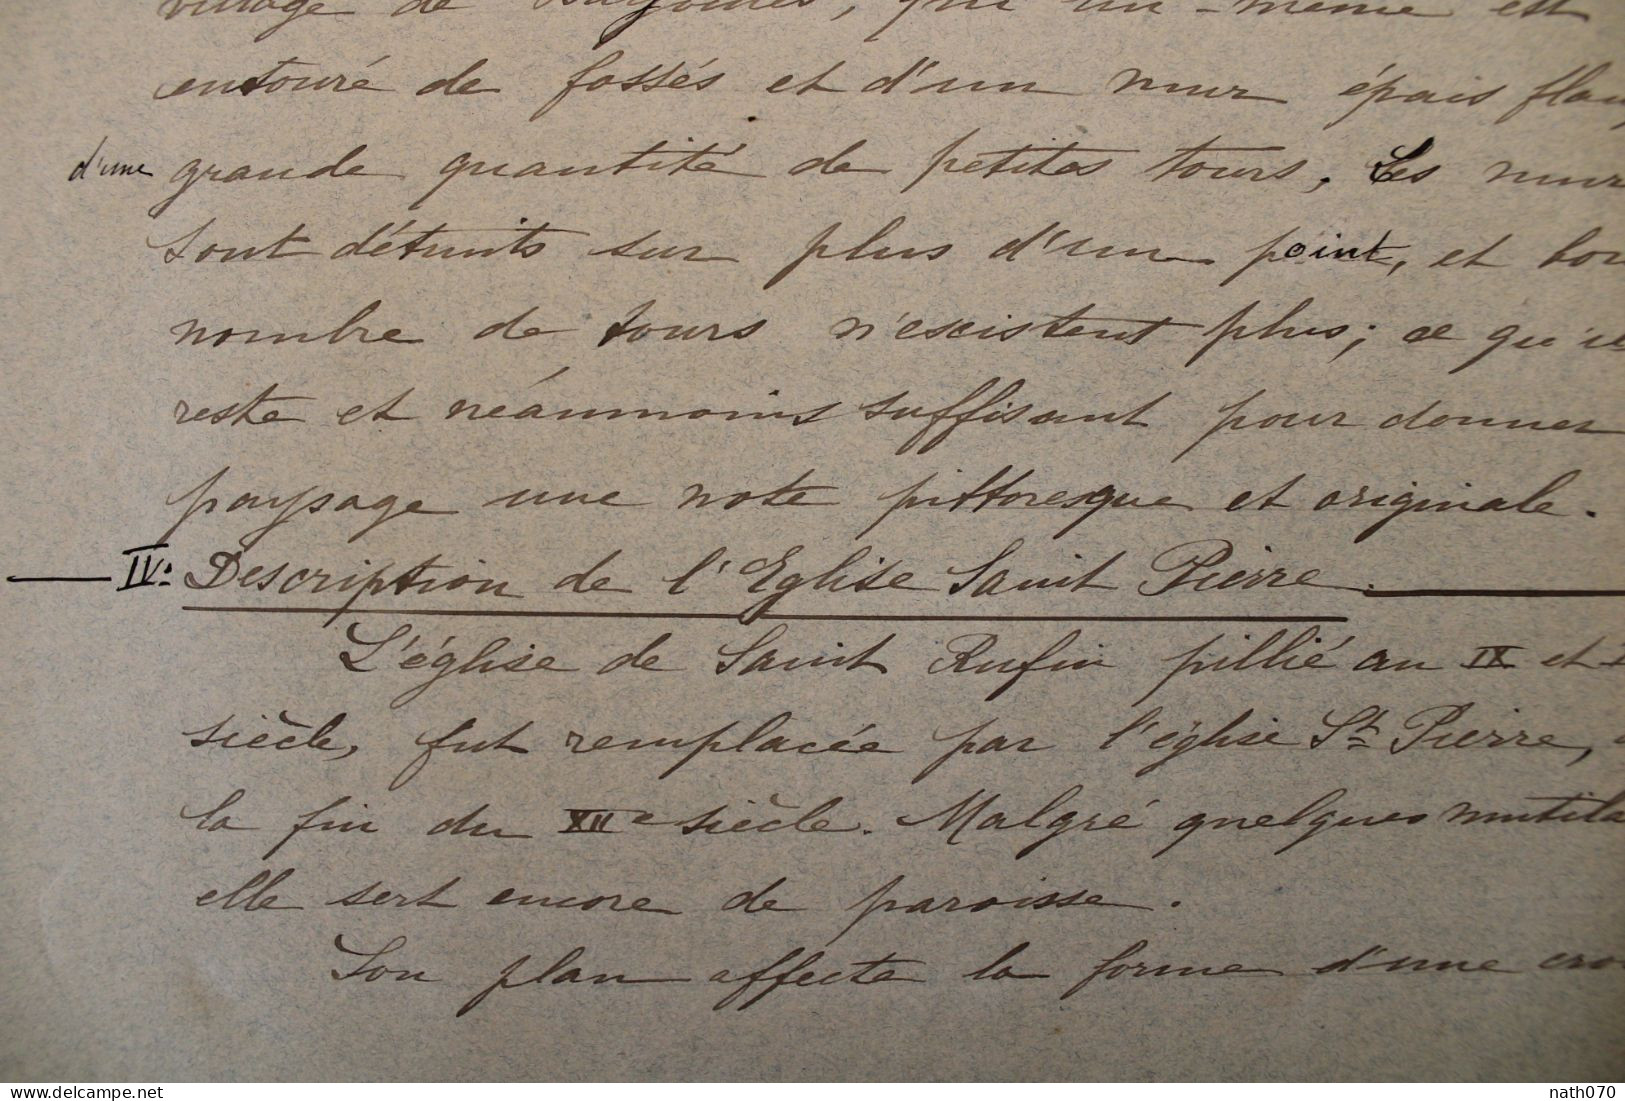 village de Bazoches, qui lui-même est
entouré de fossés et d'un mur épais flan
d'une grande quantité de petites tours. Les mur
sont détruits sur plus d'un point, et bon
nombre de tours n'existent plus; ce qu'il
reste et néanmoins suffisant pour donner
paysage une note pittoresque et originale.
IV: Description de l'Eglise Saint Pierre.
L'église de Saint Rufin pillié au IX et
siècle, fut remplacée par l'église St Pierre,
la fin du XIIe siècle. Malgré quelques mutila
elle sert encore de paroisse.
Son plan affecte la forme d'une cro
delcampe.net
nath070